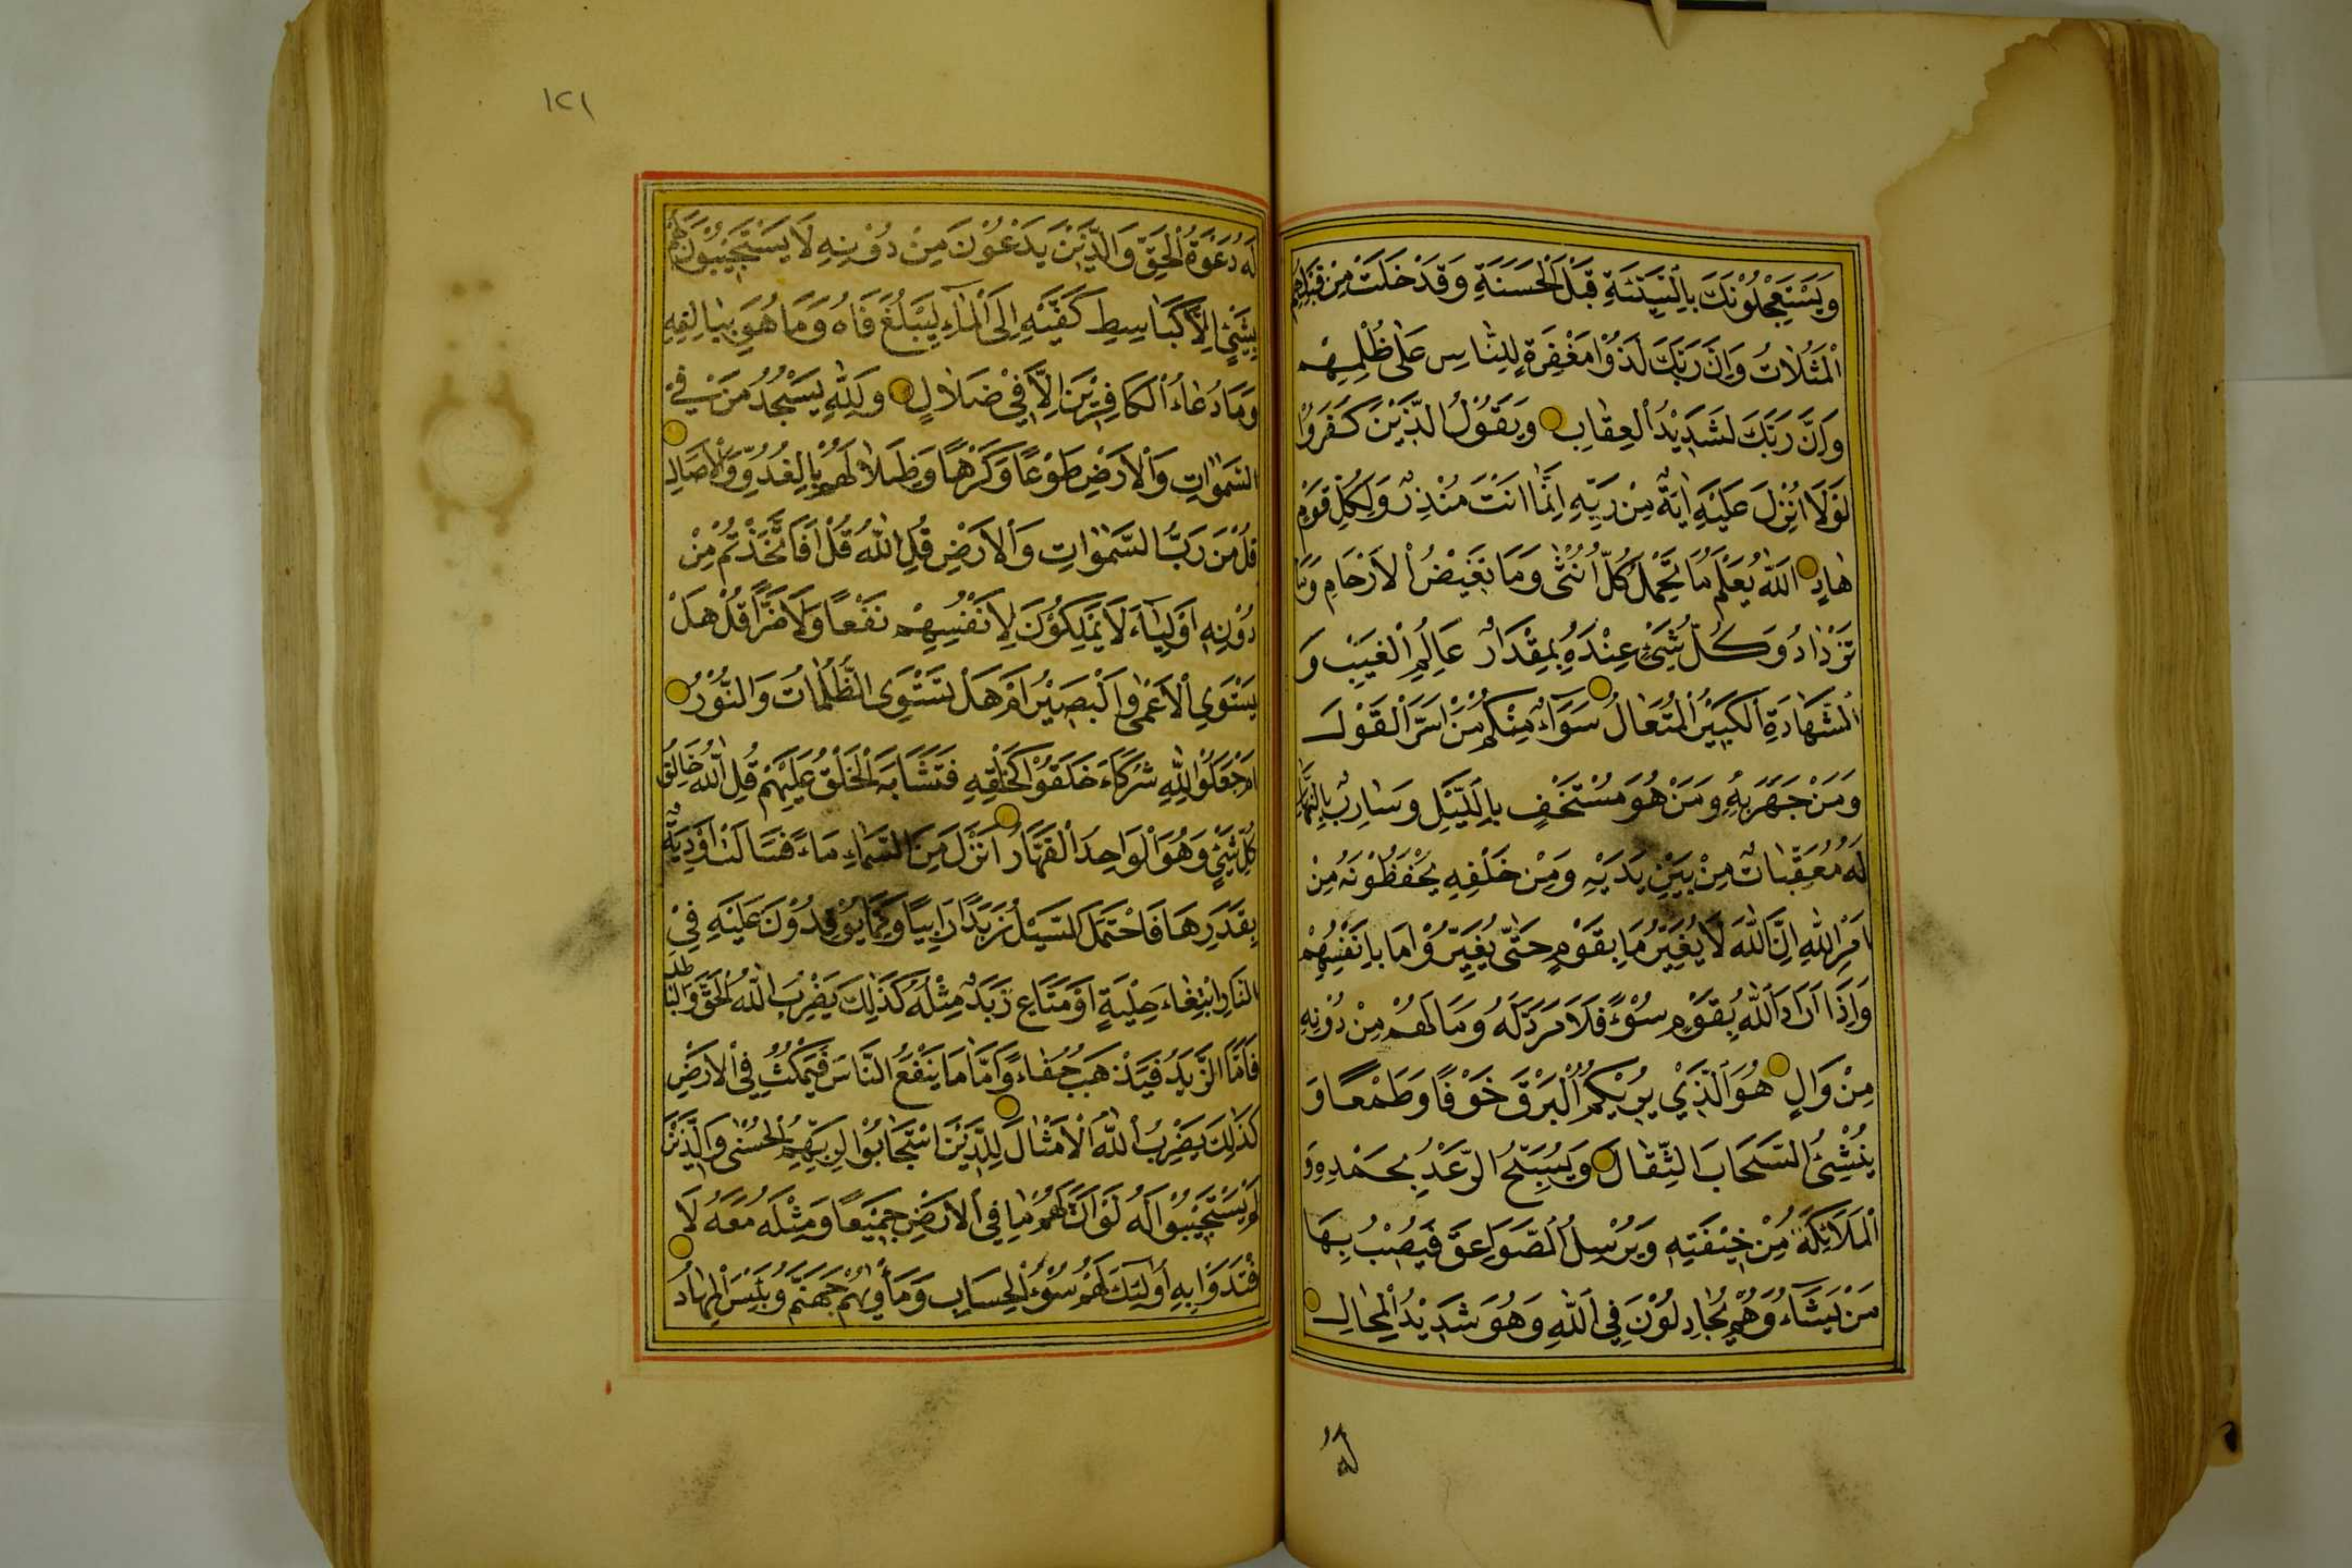 وَيَسْتَعْجِلُوْنَكَ بِالسَّيِّئَةِ قَبْلَ الْحَسَنَةِ وَقَدْ خَلَتْ مِنْ قَبْلِهِمُ
الْمَثُلَاتُ وَاِنَّ رَبَّكَ لَذُوْا مَغْفِرَةٍ لِلنَّاسِ عَلٰى ظُلْمِهِمْ
وَاِنَّ رَبَّكَ لَشَدِيْدُ الْعِقَابِ وَيَقُوْلُ الَّذِيْنَ كَفَرُوْا
لَوْلَا اُنْزِلَ عَلَيْهِ اٰيَةٌ مِنْ رَبِّهِ اِنَّمَا اَنْتَ مُنْذِرٌ وَلِكُلِّ قَوْمٍ
هَادٍ اَللّٰهُ يَعْلَمُ مَا تَحْمِلُ كُلُّ اُنْثٰى وَمَا تَغِيْضُ الْاَرْحَامُ وَمَا
تَزْدَادُ وَكُلُّ شَيْءٍ عِنْدَهُ بِمِقْدَارٍ عَالِمُ الْغَيْبِ وَ
الشَّهَادَةِ الْكَبِيْرُ الْمُتَعَالُ سَوَآءٌ مِنْكُمْ مَنْ اَسَرَّ الْقَوْلَ
وَمَنْ جَهَرَ بِهِ وَمَنْ هُوَ مُسْتَخْفٍ بِاللَّيْلِ وَسَارِبٌ بِالنَّهَارِ
لَهُ مُعَقِّبَاتٌ مِنْ بَيْنِ يَدَيْهِ وَمِنْ خَلْفِهِ يَحْفَظُوْنَهُ مِنْ
اَمْرِ اللّٰهِ اِنَّ اللّٰهَ لَا يُغَيِّرُ مَا بِقَوْمٍ حَتّٰى يُغَيِّرُوْا مَا بِاَنْفُسِهِمْ
وَاِذَا اَرَادَ اللّٰهُ بِقَوْمٍ سُوْءً فَلَا مَرَدَّ لَهُ وَمَا لَهُمْ مِنْ دُوْنِهِ
مِنْ وَالٍ هُوَ الَّذِيْ يُرِيْكُمُ الْبَرْقَ خَوْفًا وَطَمَعًا وَ
يُنْشِئُ السَّحَابَ الثِّقَالَ وَيُسَبِّحُ الرَّعْدُ بِحَمْدِهِ وَ
الْمَلَائِكَةُ مِنْ خِيْفَتِهِ وَيُرْسِلُ الصَّوَاعِقَ فَيُصِيْبُ بِهَا
مَنْ يَشَاءُ وَهُمْ يُجَادِلُوْنَ فِي اللّٰهِ وَهُوَ شَدِيْدُ الْمِحَالِ
لَهُ
١٢١
لَهُ دَعْوَةُ الْحَقِّ وَالَّذِيْنَ يَدْعُوْنَ مِنْ دُوْنِهِ لَا يَسْتَجِيْبُوْنَ لَهُمْ
بِشَيْءٍ اِلَّا كَبَاسِطِ كَفَّيْهِ اِلَى الْمَاءِ لِيَبْلُغَ فَاهُ وَمَا هُوَ بِبَالِغِهِ
وَمَا دُعَاءُ الْكَافِرِيْنَ اِلَّا فِيْ ضَلَالٍ وَلِلّٰهِ يَسْجُدُ مَنْ فِي
السَّمٰوَاتِ وَالْاَرْضِ طَوْعًا وَكَرْهًا وَظِلَالُهُمْ بِالْغُدُوِّ وَالْاٰصَالِ
قُلْ مَنْ رَبُّ السَّمٰوَاتِ وَالْاَرْضِ قُلِ اللّٰهُ قُلْ اَفَاتَّخَذْتُمْ مِنْ
دُوْنِهِ اَوْلِيَاءَ لَا يَمْلِكُوْنَ لِاَنْفُسِهِمْ نَفْعًا وَلَا ضَرًّا قُلْ هَلْ
يَسْتَوِي الْاَعْمٰى وَالْبَصِيْرُ اَمْ هَلْ تَسْتَوِى الظُّلُمَاتُ وَالنُّوْرُ
اَمْ جَعَلُوْا لِلّٰهِ شُرَكَاءَ خَلَقُوْا كَخَلْقِهِ فَتَشَابَهَ الْخَلْقُ عَلَيْهِمْ قُلِ اللّٰهُ خَالِقُ
كُلِّ شَيْءٍ وَهُوَ الْوَاحِدُ الْقَهَّارُ اَنْزَلَ مِنَ السَّمَاءِ مَاءً فَسَالَتْ اَوْدِيَةٌ
بِقَدَرِهَا فَاحْتَمَلَ السَّيْلُ زَبَدًا رَابِيًا وَمِمَّا يُوْقِدُوْنَ عَلَيْهِ فِي
النَّارِ ابْتِغَاءَ حِلْيَةٍ اَوْ مَتَاعٍ زَبَدٌ مِثْلُهُ كَذٰلِكَ يَضْرِبُ اللّٰهُ الْحَقَّ وَالْبَاطِلَ
فَاَمَّا الزَّبَدُ فَيَذْهَبُ جُفَاءً وَاَمَّا مَا يَنْفَعُ النَّاسَ فَيَمْكُثُ فِي الْاَرْضِ
كَذٰلِكَ يَضْرِبُ اللّٰهُ الْاَمْثَالَ لِلَّذِيْنَ اسْتَجَابُوْا لِرَبِّهِمُ الْحُسْنٰى وَالَّذِيْنَ
لَمْ يَسْتَجِيْبُوْا لَهُ لَوْ اَنَّ لَهُمْ مَا فِي الْاَرْضِ جَمِيْعًا وَمِثْلَهُ مَعَهُ لَا
فْتَدَوْا بِهِ اُولٰئِكَ لَهُمْ سُوْءُ الْحِسَابِ وَمَأْوٰيهُمْ جَهَنَّمُ وَبِئْسَ الْمِهَادُ